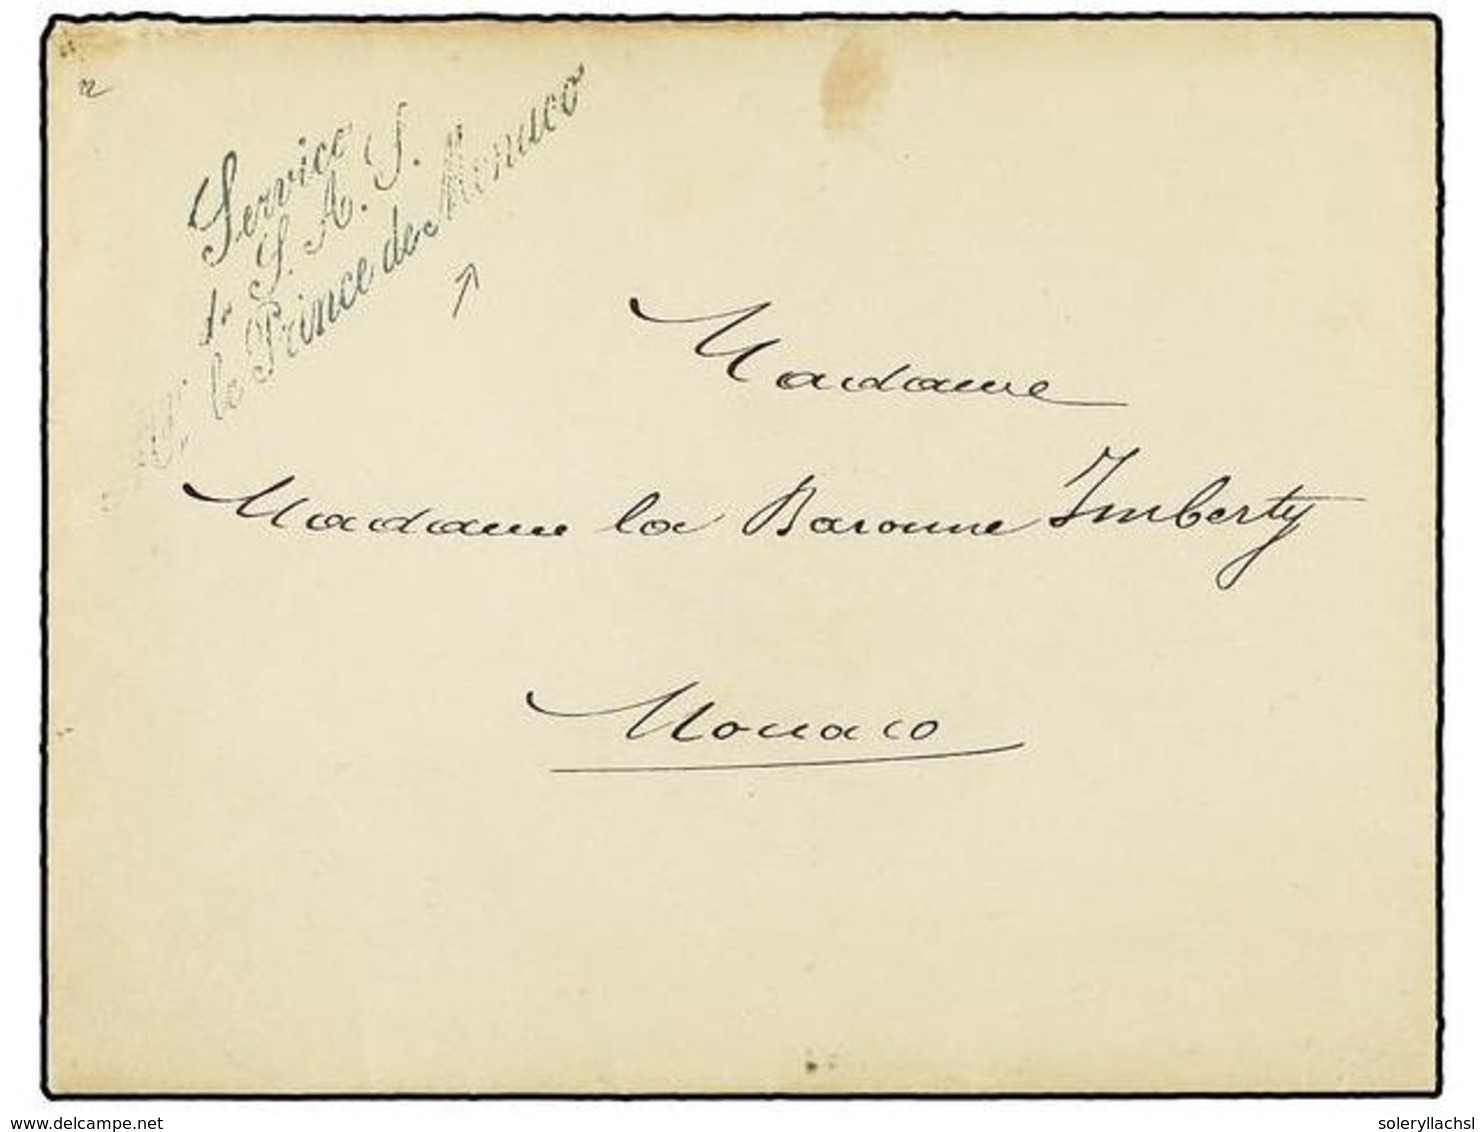 Service
de S. A. S.
le Prince de Monaco
Madame
Madame la Baronne Imberty
Monaco
delcampe.net
soleryllachsl